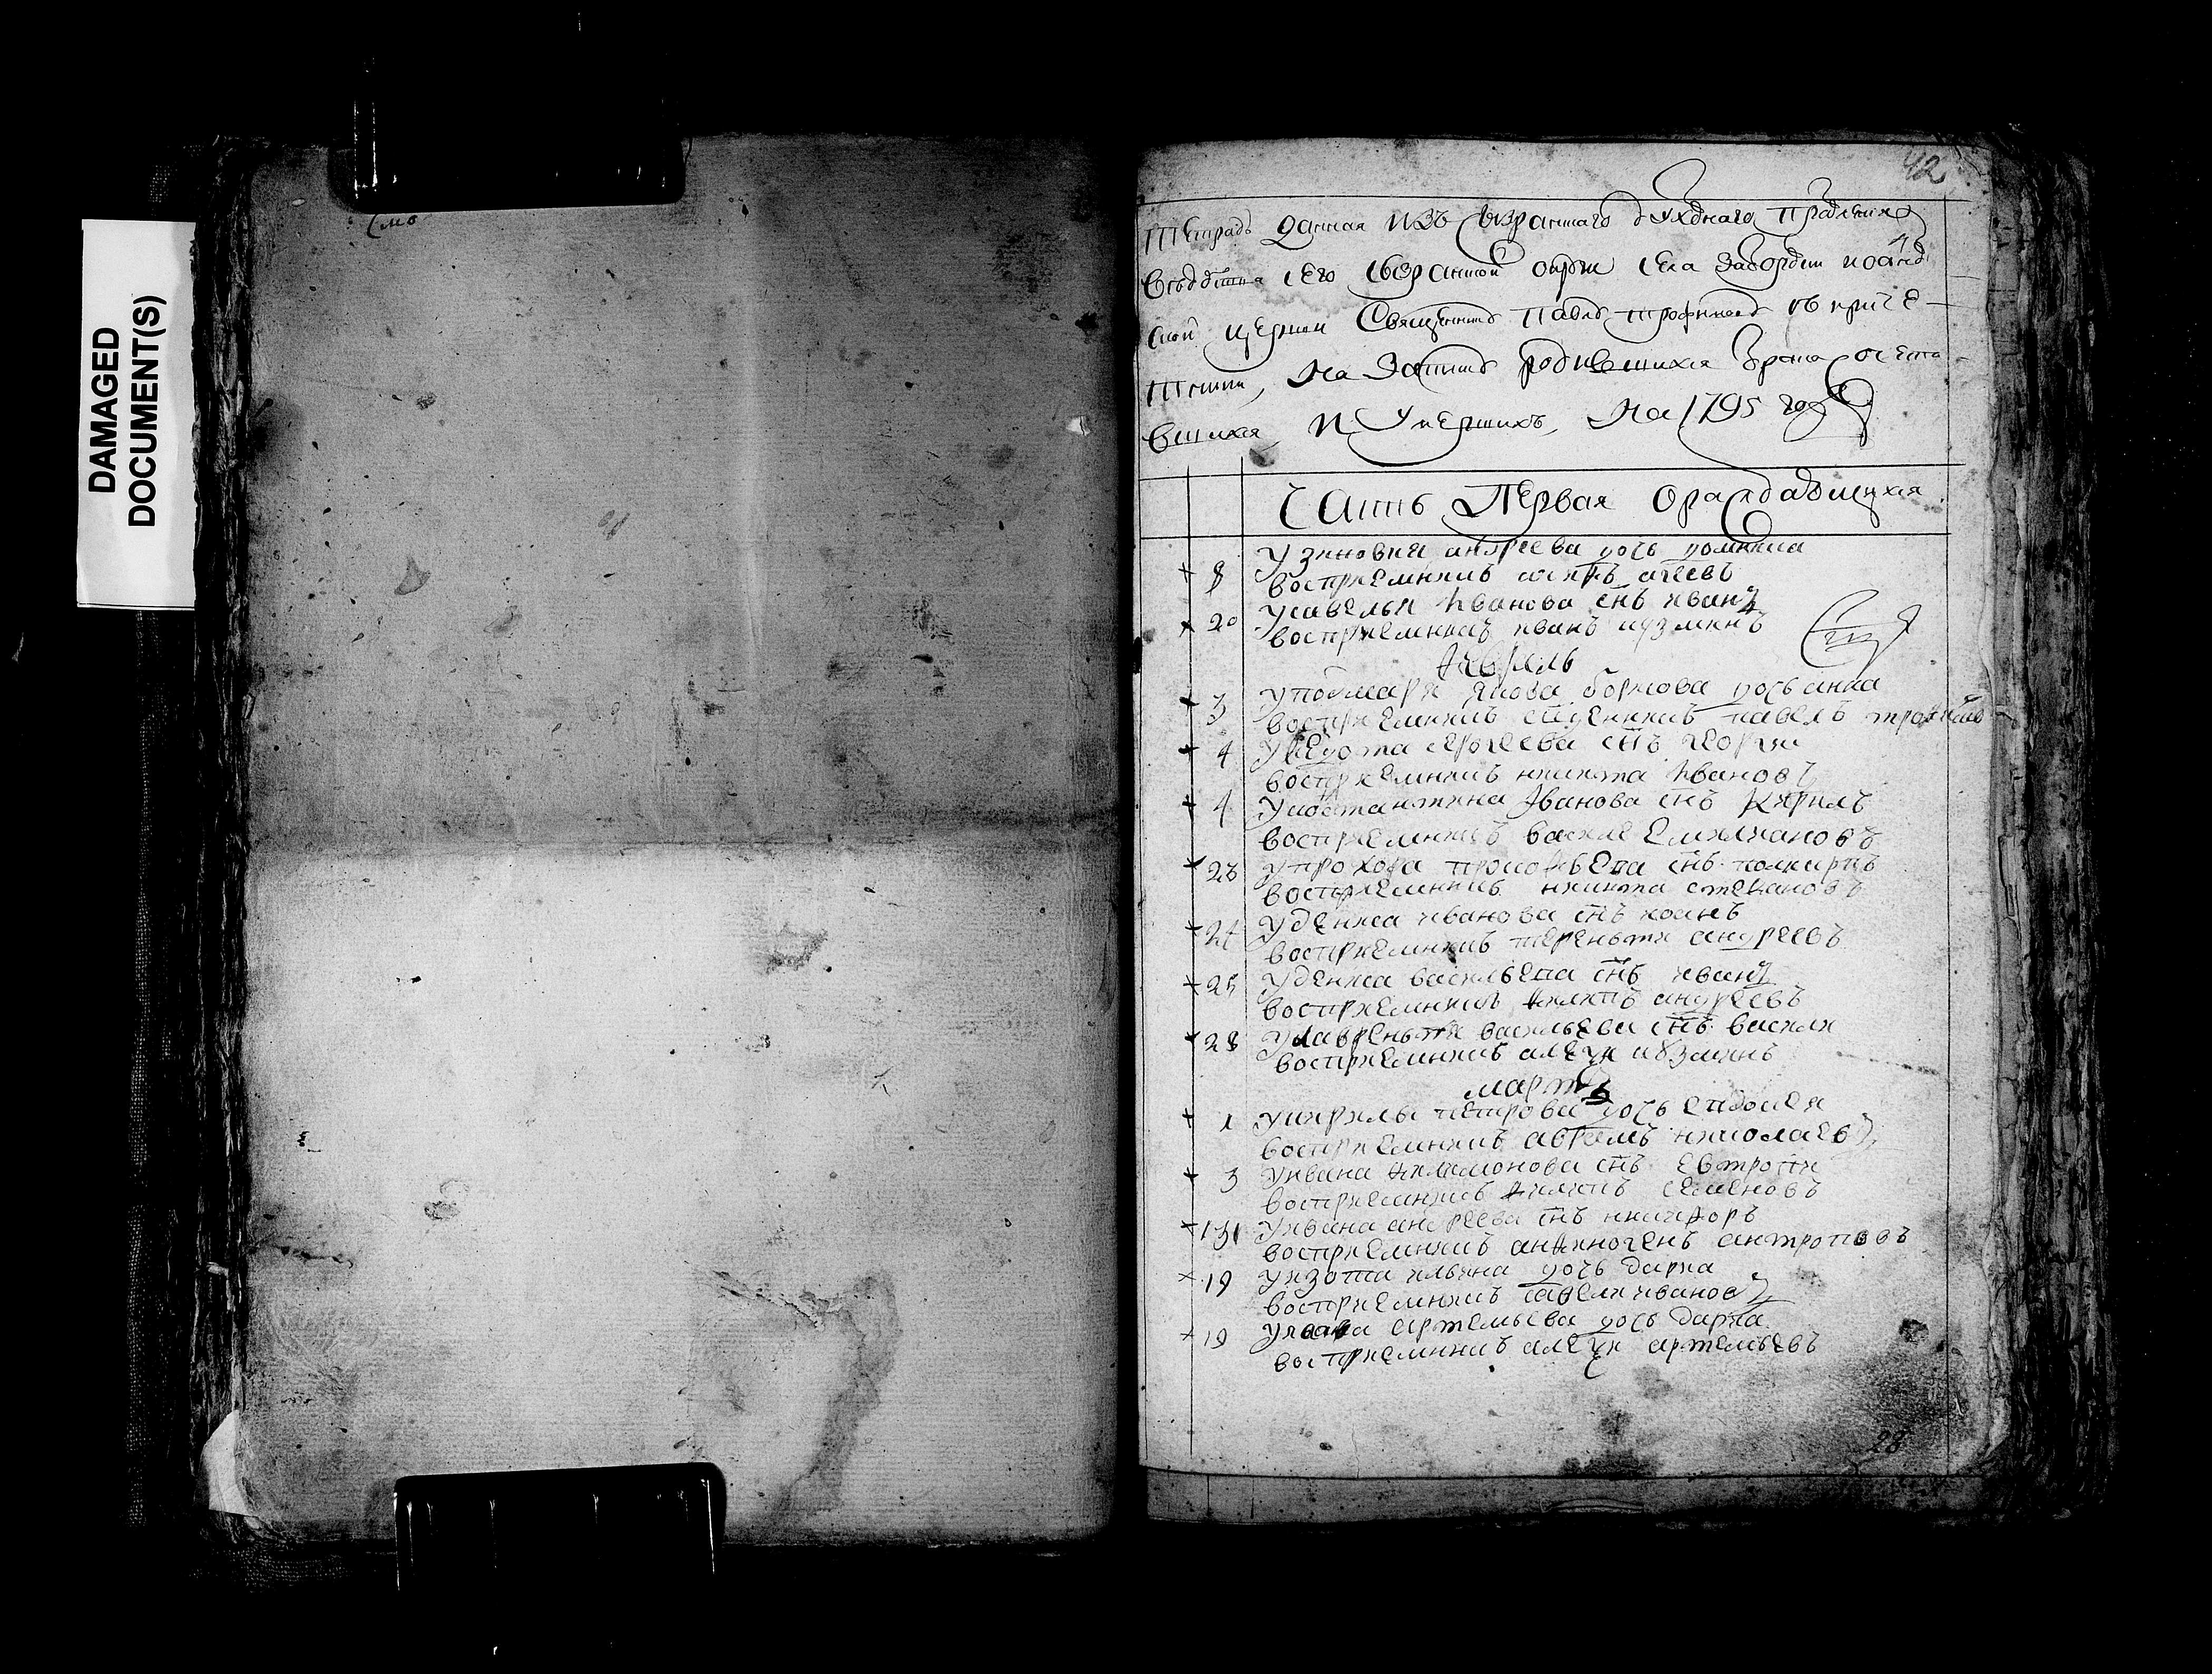 DAMAGED
DOCUMENT(S)
42
Тетрадь данная изъ духовнаго правления
его округи села иоанов
ской церкви Священнику Павлу Трофимову съ приче
тники, на записку родившихся брако сочета
вшихся, и Умершихъ, на 1795 годъ
Часть Первая ораждающихся
8 У зиновия андреева дочь домникиа
восприемникъ осипъ агеевъ
20 У савелья иванова снъ иванъ
восприемникъ иванъ кузминъ
Февраль
3 У пономаря якова борисова дочь анна
восприемникъ сщенникъ павелъ трофимовъ
4 У федота сергеева снъ георгий
восприемникъ никита ивановъ
4 У костантина Иванова снъ Кирилъ
восприемникъ василе Емилиановъ
23 У прохора прокофьева снъ поликарпъ
восприемникъ никита степановъ
24 У дениса иванова снъ иоанъ
восприемникъ терентьи андреевъ
25 У дениса васильева снъ иванъ
восприемникъ филипъ андреевъ
28 У лаврентья васильева снъ василии
восприемникъ алеѯи кузминъ
мартъ
1 У кирилы петрова дочь евдокея
восприемникъ аврамъ николаевъ
3 У ивана филимонова снъ евтропи
восприемникъ филипъ семеновъ
13 У ивана андреева снъ никифоръ
восприемникъ анфиногенъ антроповъ
19 У изота ильина дочь дарья
восприемникъ савели ивановъ
19 артемьева дочь дарья
восприемникъ алеѯи артемьевъ
28